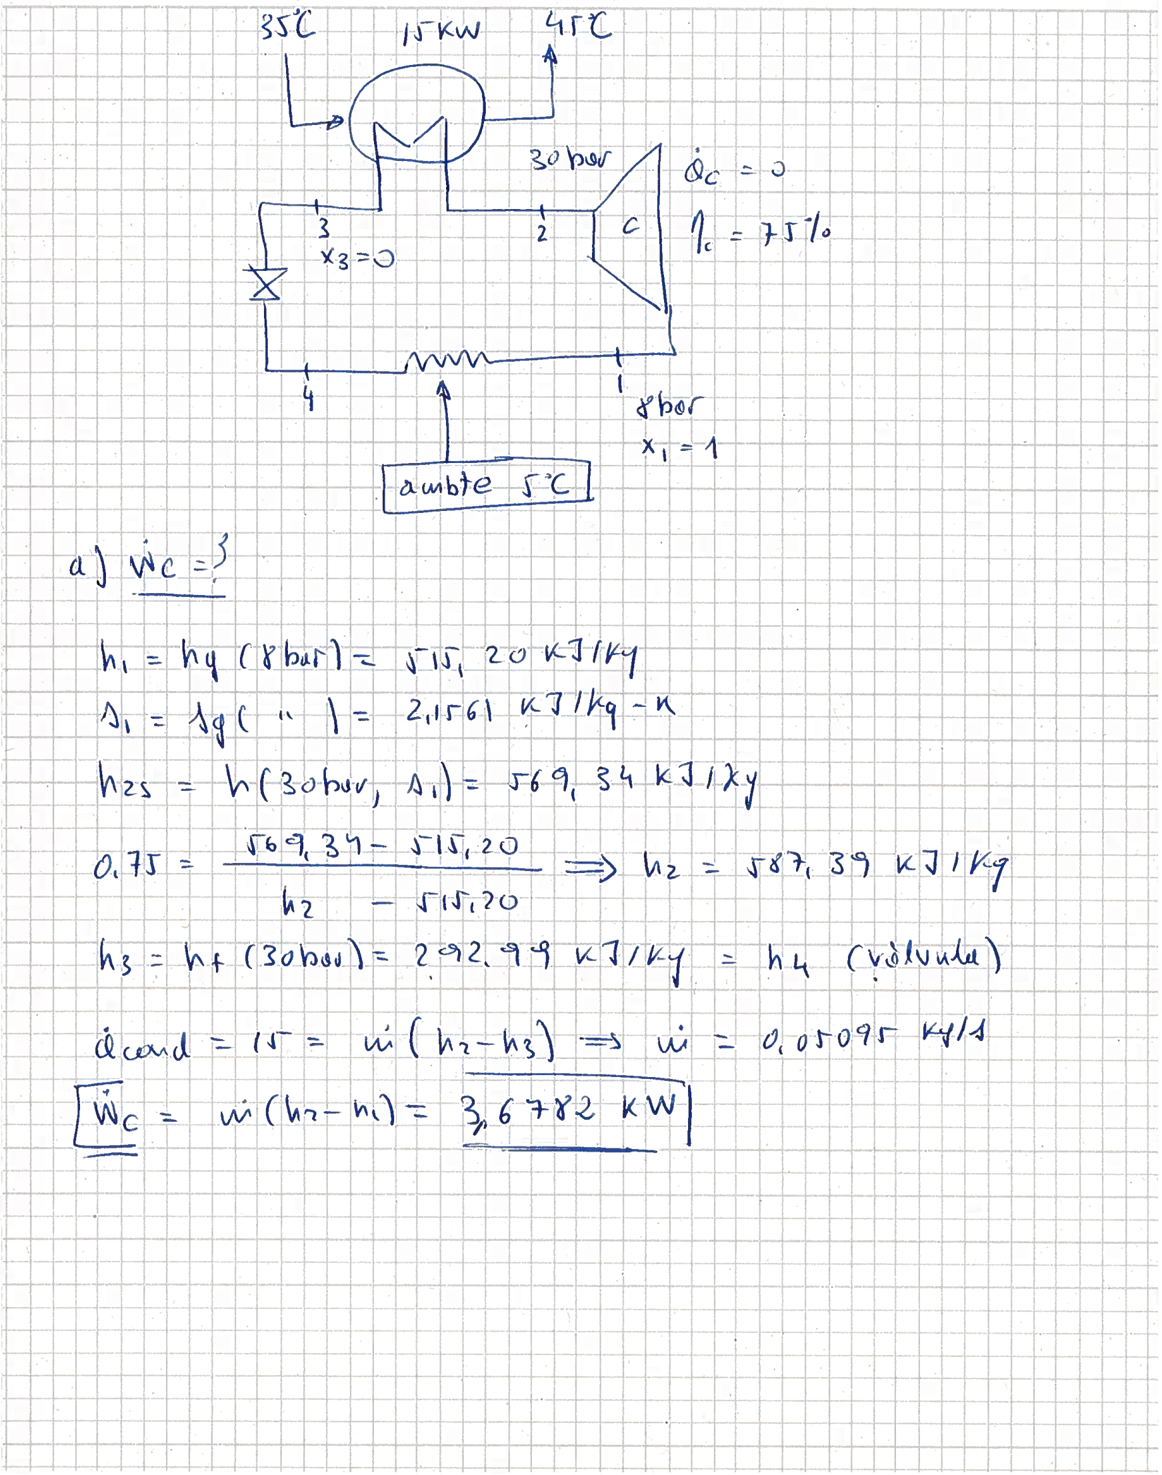 35°C 15KW 45°C
30bar Q̇c = 0
3 2 C ηc = 75%
x3=0
4 1
8bar
x1 = 1
ambte 5°C
a) Ẇc = ?
h1 = hg (8bar) = 515,20 KJ/Kg
s1 = sg( " ) = 2,1561 KJ/kg-K
h2s = h(30bar, s1) = 569,34 KJ/Kg
0,75 = (569,34 - 515,20) / (h2 - 515,20) ⟹ h2 = 587,39 KJ/Kg
h3 = hf (30bar) = 292,99 KJ/Kg = h4 (válvula)
Q̇cond = 15 = ṁ(h2-h3) ⟹ ṁ = 0,05095 Kg/s
Ẇc = ṁ(h2-h1) = 3,6782 KW